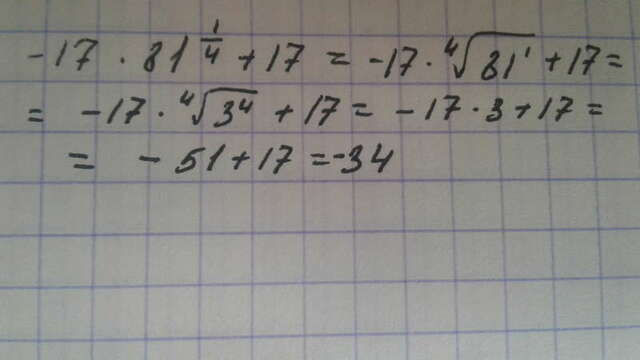 -17 · 81^{\frac{1}{4}} + 17 = -17 · \sqrt[4]{81^1} + 17 =
= -17 · \sqrt[4]{3^4} + 17 = -17 · 3 + 17 =
= -51 + 17 = -34